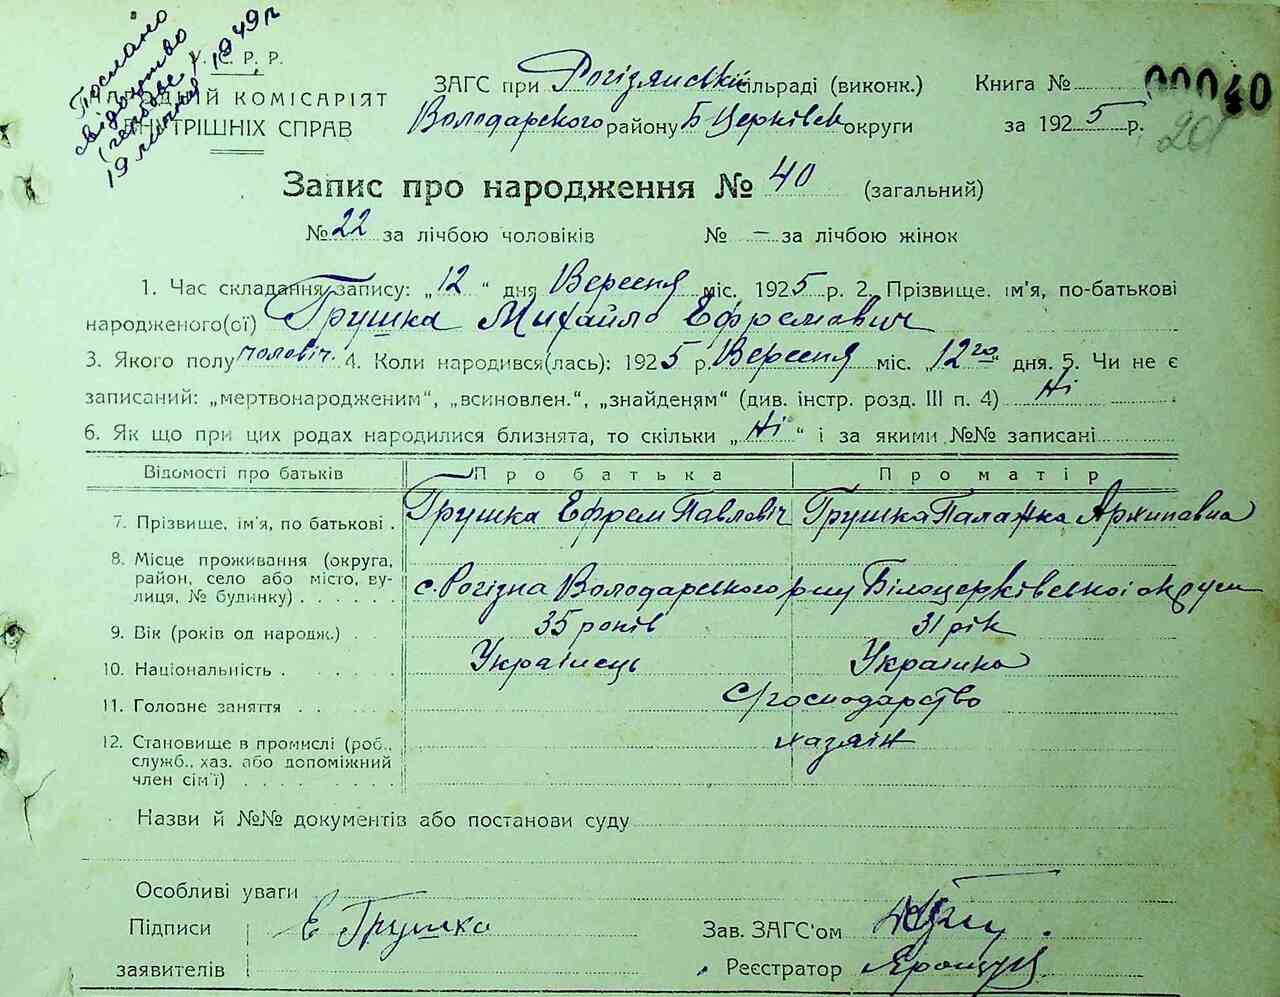 Послано
свідоцтво
19 1949 р
У. С. Р. Р.
НАРОДНІЙ КОМІСАРІЯТ
ВНУТРІШНІХ СПРАВ
ЗАГС при Рогізянській сільраді (виконк.)
Володарского району Б Церківск округи
Книга №
00040
за 1925 р.
20
Запис про народження № 40 (загальний)
№ 22 за лічбою чоловіків № – за лічбою жінок
1. Час складання запису: „12“ дня Вересня міс. 1925 р. 2. Прізвище, ім'я, по-батькові
народженого(ої) Грушка Михайло Ефремович
3. Якого полу чоловіч. 4. Коли народився(лась): 1925 р. Вересня міс. „12го“ дня. 5. Чи не є
записаний: „мертвонародженим“, „всиновлен.“, „знайденям“ (див. інстр. розд. III п. 4) Ні
6. Як що при цих родах народилися близнята, то скільки „Ні“ і за якими №№ записані
Відомості про батьків Про батька Про матір
7. Прізвище, ім'я, по батькові . Грушка Ефрем Павловіч Грушка Палажка Архиповна
8. Місце проживання (округа,
район, село або місто, ву-
лиця, № будинку) с. Рогізна Володарського р-ну Білоцерківської округи
9. Вік (років од народж.) . 35 років 31 рік
10. Національність Українець Українка
11. Головне заняття С/господарство
12. Становище в промислі (роб.,
служб., хаз. або допоміжний
член сім'ї) хазяін
Назви й №№ документів або постанови суду
Особливі уваги
Підписи Е Грушка Зав. ЗАГС'ом
заявителів Реєстратор